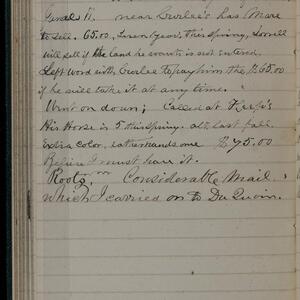 near Curlee's has Mare
to sell. 65.00, Seven years this Spring, Lovell
will sell if the land he wants is not entered.
Left word with Curlee to pay him the $65.00
if he will take it at any time.
Went on down; Called at Kerps
His Horse is 5 this Spring. alt last fall.
Extra color, rather hands one $75.00
Believe I must have it.
Roots, Considerable Mail
which I carried on to Du Quoin.